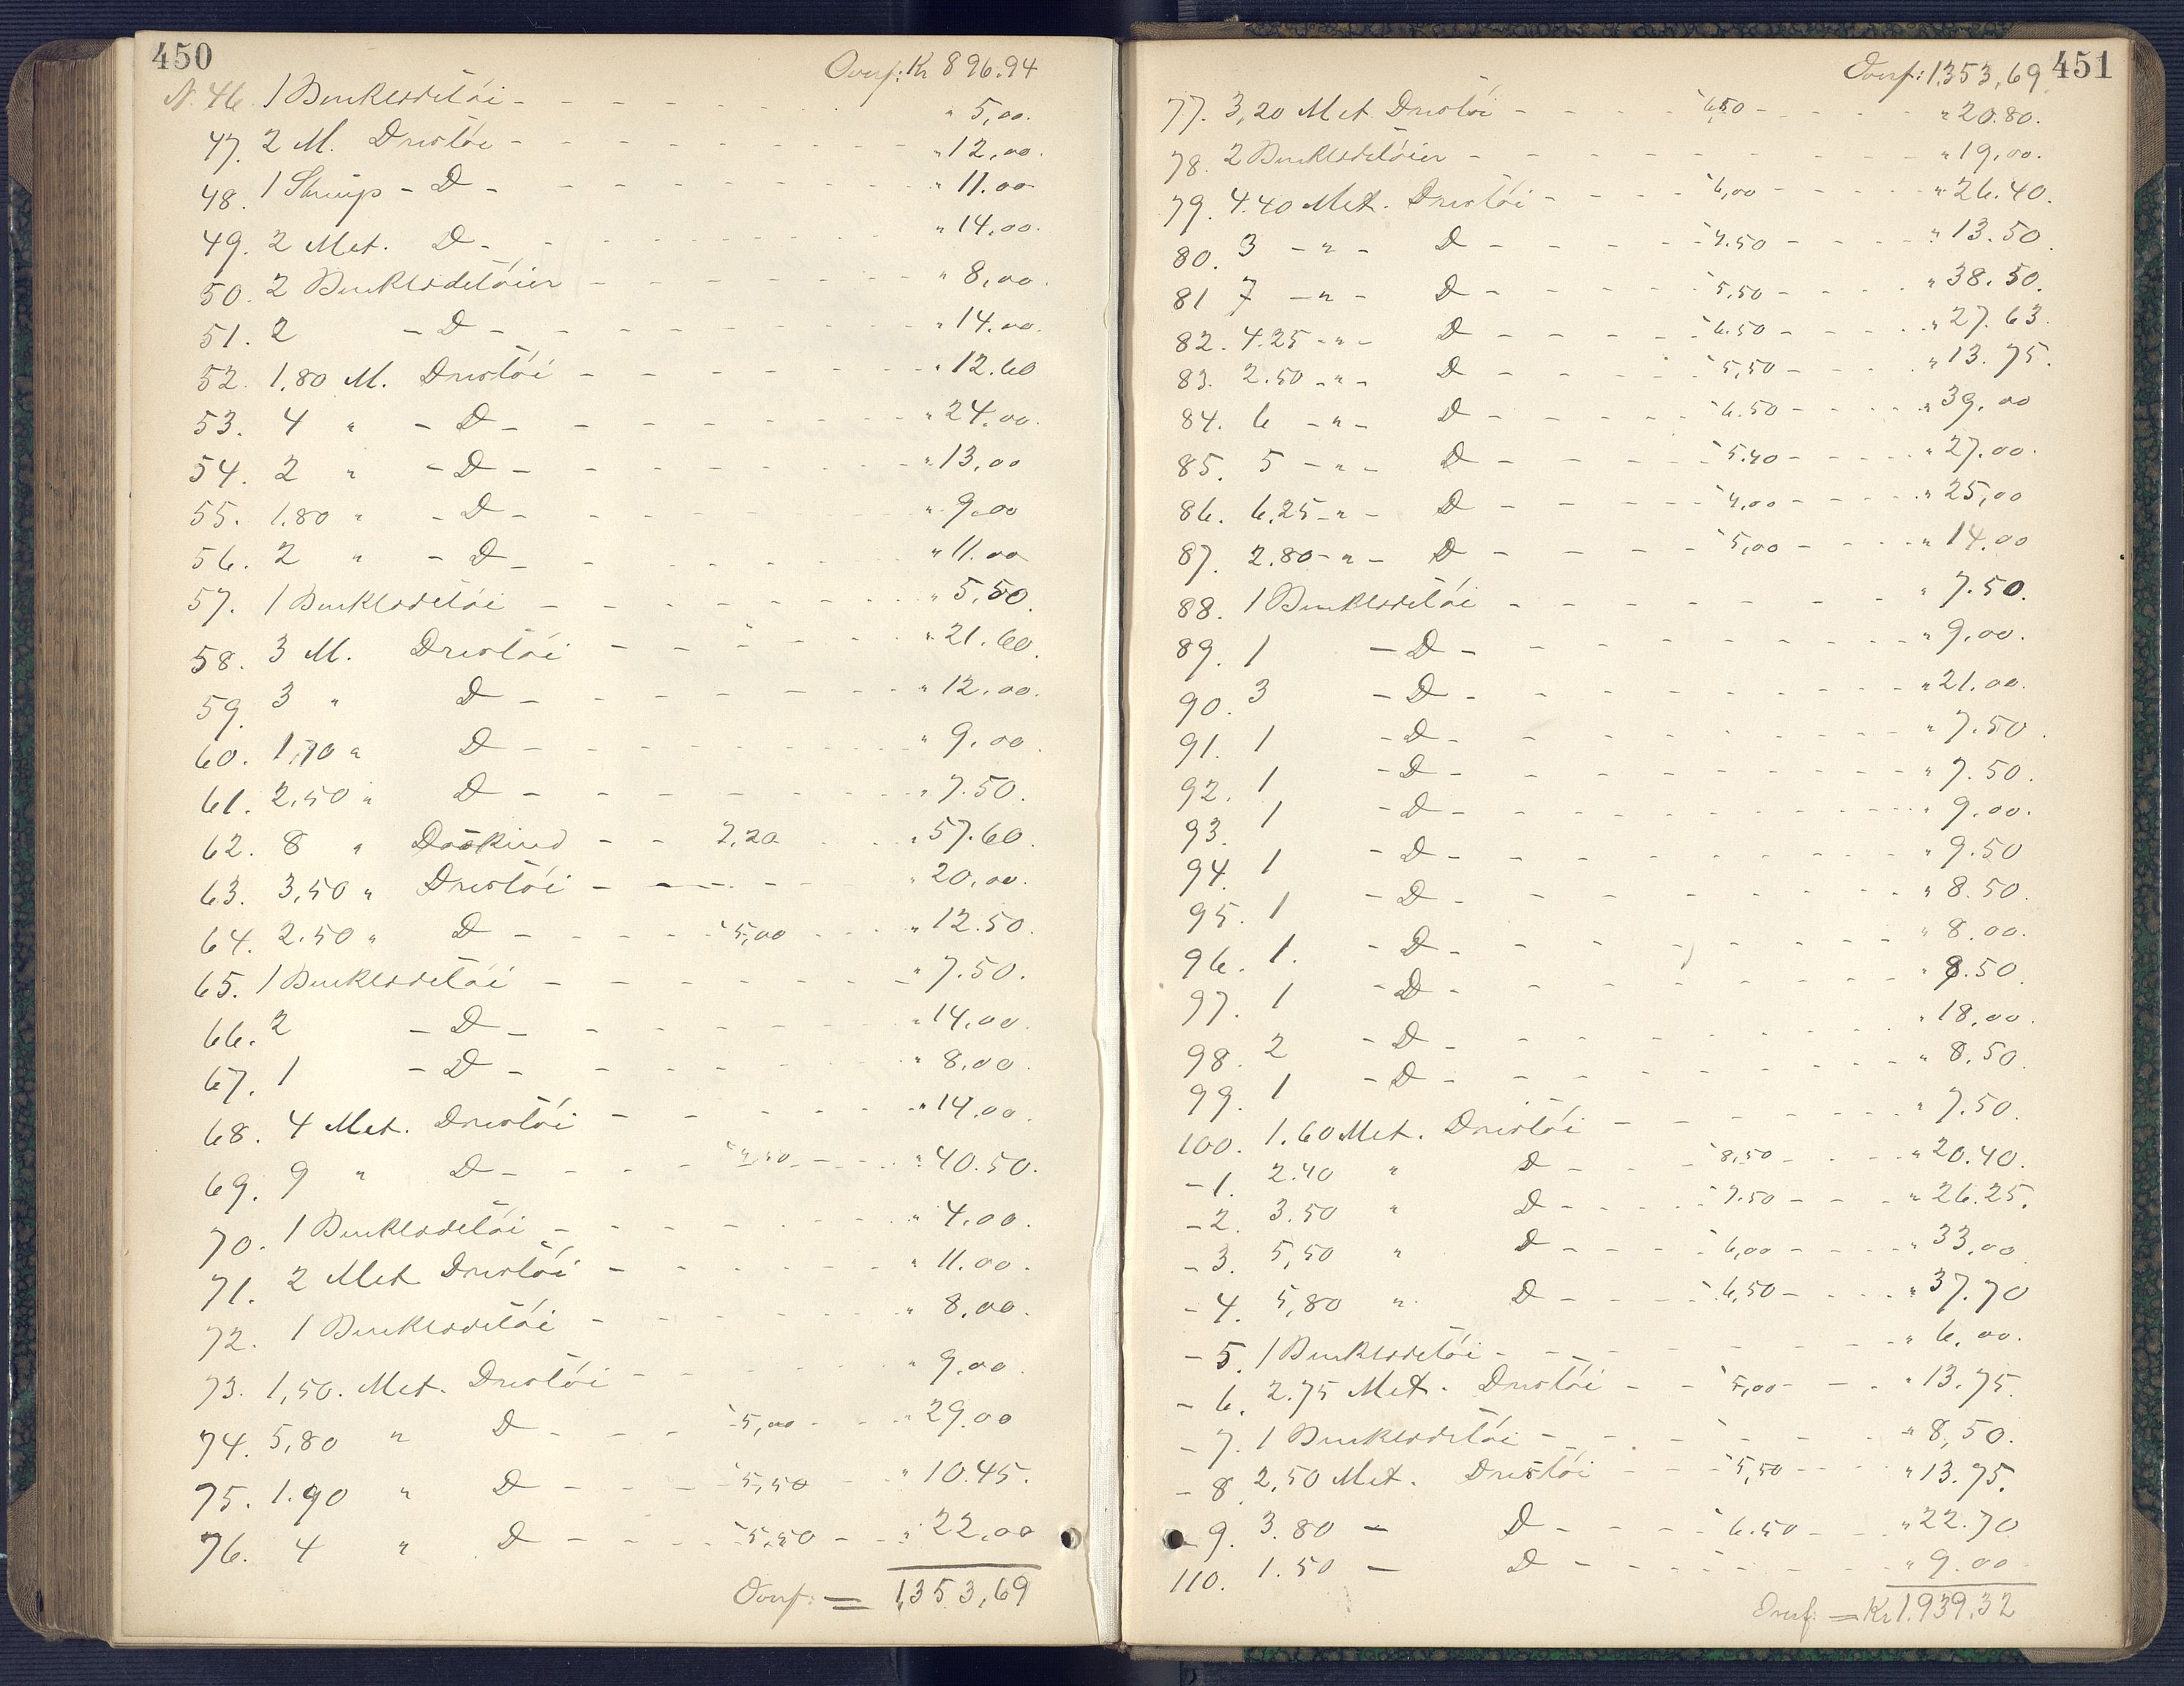 450
Overf: Kr 896.94
N. 46. 1 Benklædetöi - - - " 5,00.
47. 2 M. Drestöi - - - " 12,00.
48. 1 Strüip - D - - - " 11.00
49. 2 Met. D - - - " 14,00.
50. 2 Benklædetöier - - - " 8,00.
51. 2 - D - - - " 14.00.
52. 1,80 M. Drestöi - - - " 12.60
53. 4 " - D - - - " 24.00.
54. 2 " - D - - - " 13,00
55. 1.80 " - D - - - " 9.00
56. 2 " - D - - - " 11.00
57. 1 Benklædetöi - - - " 5,50.
58. 3 M. Drestöi - - - " 21.60.
59. 3 " D - - - " 12.00.
60. 1,70 " D - - - " 9.00.
61. 2,50 " D - - - " 7.50.
62. 8 " Dooskind - - 7,20 " 57.60
63. 3,50 " Drestöi - - - " 20,00.
64. 2.50 " D - - - 5,00 " 12.50.
65. 1 Benklædetöi - - - " 7.50.
66. 2 - D - - - " 14,00.
67. 1 - D - - - " 8,00.
68. 4 Met. Drestöi - - - " 14,00.
69. 9 " D - - - 4,50 - - " 40.50.
70. 1 Benklædetöi - - - " 4.00.
71. 2 Met Drestöi - - - " 11.00.
72. 1 Benklædetöi - - - " 8,00.
73. 1,50. Met. Drestöi - - - " 9,00.
74. 5,80 " D - - - 5,00 - " 29.00
75. 1.90 " D - - - 5,50 - " 10.45.
76. 4 " D - - - 5,50 - - " 22,00
Overf: = 1,353,69
451
Overf: 1,353,69
77. 3,20 Met Drestöi - - - 6,50 - - - " 20.80.
78. 2 Benklædetöier - - - " 19,00.
79. 4.40 Met. Drestöi - - - 6,00 - - - " 26.40.
80. 3 - " - D - - - 4.50 - - - " 13.50.
81 7 - " - D - - - 5,50 - - - " 38.50.
82. 4.25 - " - D - - - 6.50 - - - " 27.63.
83. 2.50 - " - D - - - 5,50 - - - " 13.75.
84. 6 - " - D - - - 6.50 - - - " 39,00
85. 5 - " - D - - - 5.40 - - - " 27.00.
86. 6,25 - " - D - - - 4,00 - - - " 25,00
87. 2.80 - " - D - - - 5,00 - - - " 14.00
88. 1 Benklædetöi - - - " 7.50.
89. 1 - D - - - " 9,00.
90. 3 - D - - - " 21.00.
91. 1 - D - - - " 7.50.
92. 1 - D - - - " 7.50.
93. 1 - D - - - " 9.00.
94. 1 - D - - - " 9.50
95. 1 - D - - - " 8.50.
96. 1. - D - - - " 8.00.
97. 1 - D - - - " 8.50.
98. 2 - D - - - " 18,00.
99. 1 - D - - - " 8.50.
100. 1.60 Met. Drestöi - - - " 7.50.
- 1. 2.40 " D - - - 8,50 - - - " 20.40.
- 2. 3.50 " D - - - 7.50 - - - " 26.25.
- 3. 5,50 " D - - - 6,00 - - - " 33,00
- 4. 5,80 " D - - - 6,50 - - - " 37.70
- 5. 1 Benklædetöi - - - " 6.00.
- 6. 2.75 Met. Drestöi - - 5,00 - - " 13.75.
- 7. 1 Benklædetöi - - - " 8,50.
- 8. 2,50 Met. Drestöi - - 5,50 - - " 13.75.
- 9. 3.80 - D - - - 6.50 - - " 22.70
110. 1.50 - D - - - " 9.00
Overf: = Kr 1.939,32